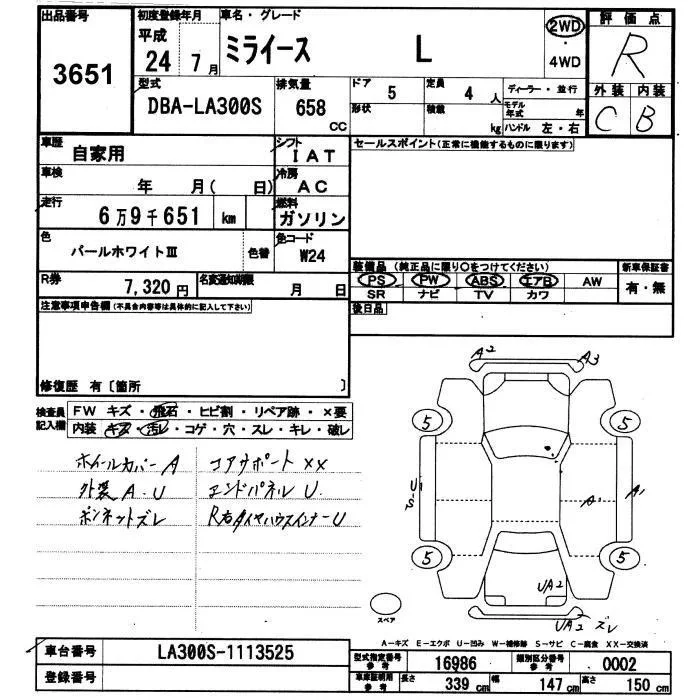 出品番号
3651
初度登録年月
平成
24年 7月
車名・グレード
ミライース L
2WD
・
4WD
評価点
R
外装 内装
C B
型式
DBA-LA300S
排気量
658
CC
ドア 5
定員 4 人
形状
積載 kg
ディーラー・並行
モデル年式 年
ハンドル 左・右
車歴
自家用
シフト
IAT
セールスポイント(正常に機能するものに限ります)
車検
年 月( 日)
冷房
AC
走行
6万9千651 km
燃料
ガソリン
色
パールホワイトⅢ
色替
色コード
W24
装備品(純正品に限り○をつけてください)
PS PW ABS エアB AW
SR ナビ TV カワ
新車保証書
有・無
R券
7,320円
名変通知期限
月 日
後日品
注意事項申告欄(不具合内容等は具体的に記入して下さい)
修復歴 有〔箇所 〕
検査員記入欄
FW キズ・飛石・ヒビ割・リペア跡・×要
内装 キズ・汚レ・コゲ・穴・スレ・キレ・破レ
ホイールカバーA コアサポートXX
外装A.U エンドパネルU
ボンネットズレ R右タイヤハウスインナーU
A2 A3
5 5
U1
S1
A1 A1
5 5
UA2
UA2 ズレ
スペア
A−キズ E−エクボ U−凹み W−補修跡 S−サビ C−腐食 XX−交換済
車台番号
LA300S-1113525
登録番号
型式指定番号
参考
16986
類別区分番号
参考
0002
車庫証明用
参考
長さ 339 cm
幅 147 cm
高さ 150 cm